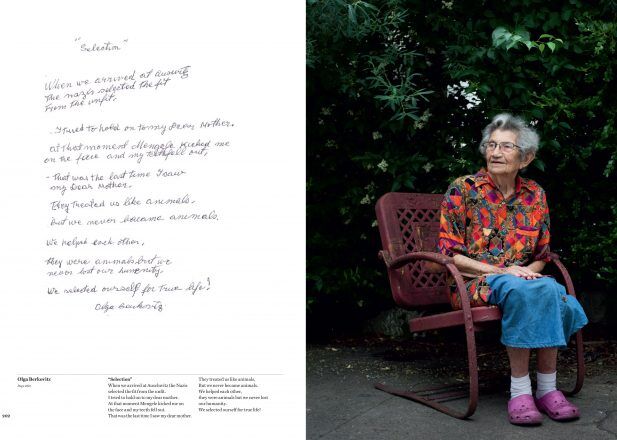 "Selection"
When we arrived at Auswitz
the nazis selected the fit
from the unfit.
I tried to hold on to my Dear Mother.
at that moment Mengele kicked me
on the face and my teeth fell out,
- That was the last time I saw
my Dear Mother.
They treated us like animals.
but we never became animals.
We helped each other,
they were animals but we
never lost our humanity.
We selected ourself for true life!
Olga Berkovitz
Olga Berkovitz
"Selection"
When we arrived at Auschwitz the Nazis
selected the fit from the unfit.
I tried to hold on to my dear mother.
At that moment Mengele kicked me on
the face and my teeth fell out.
That was the last time I saw my dear mother.
They treated us like animals,
But we never became animals.
We helped each other,
they were animals but we never lost
our humanity.
We selected ourself for true life!